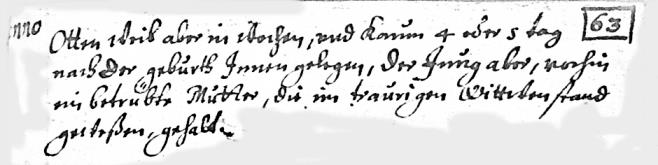 nno
Otten Weib aber in Wochen, und Kaum 4 oder 5 tag 63
nach der geburth Innen gelegen, Der Jung aber, vorhin
ein betrübte Mutter, die im traurigen Wittiben stand
geseßen, gehabt.